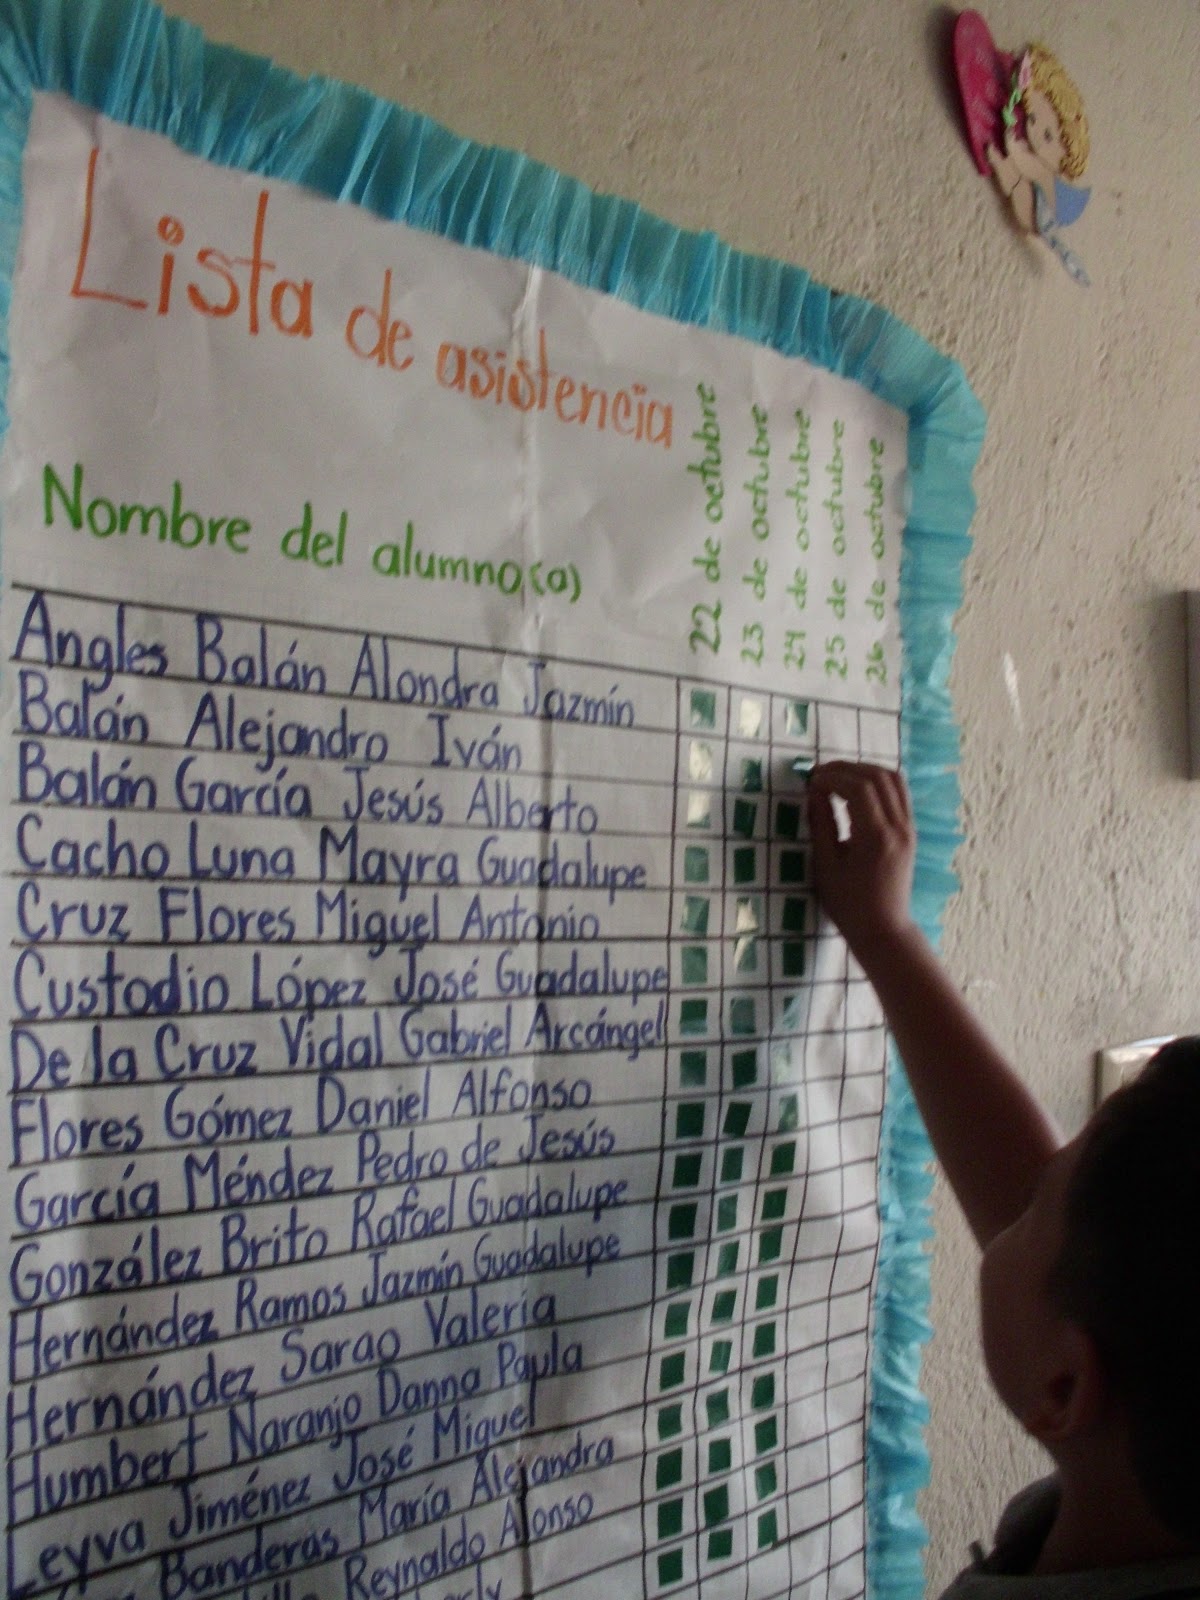 Lista de asistencia
Nombre del alumno(a)
22 de octubre
23 de octubre
24 de octubre
25 de octubre
26 de octubre
Angles Balán Alondra Jazmín
Balán Alejandro Iván
Balán García Jesús Alberto
Cacho Luna Mayra Guadalupe
Cruz Flores Miguel Antonio
Custodio López José Guadalupe
De la Cruz Vidal Gabriel Arcángel
Flores Gómez Daniel Alfonso
García Méndez Pedro de Jesús
González Brito Rafael Guadalupe
Hernández Ramos Jazmín Guadalupe
Hernández Sarao Valeria
Humbert Naranjo Danna Paula
Leyva Jiménez José Miguel
Banderas María Alejandra
Reynaldo Alonso